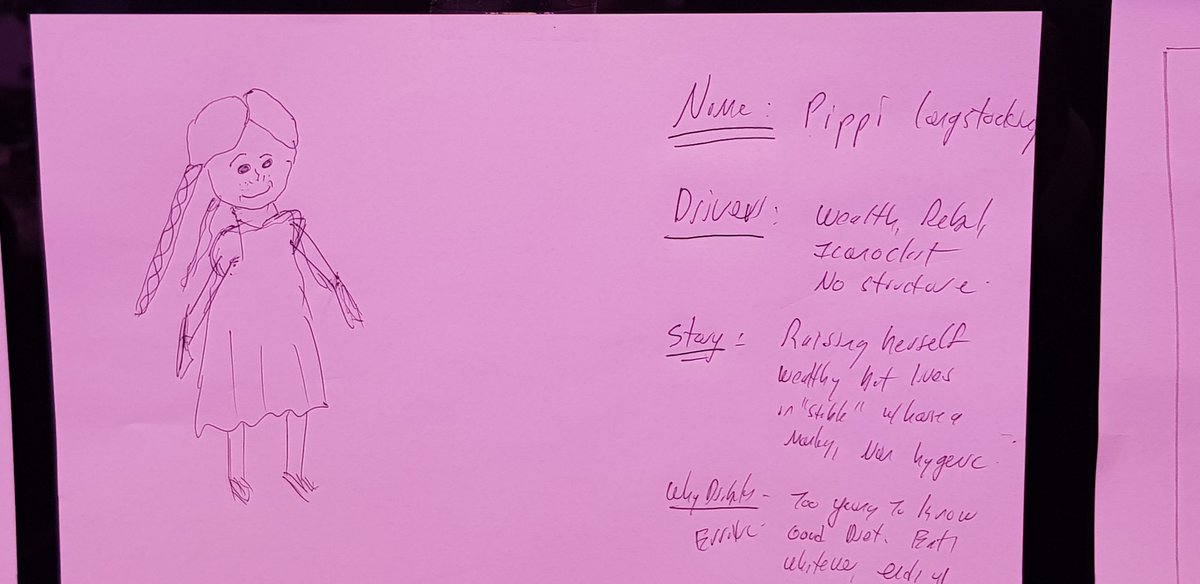 Name: Pippi Longstocking
Drivers: Wealth, Rebel,
Iconoclast
No structure.
Story: Raising herself
wealthy but lives
in "stable" w/ horse &
monkey, Non hygenic.
Why Diabetes - Too young to know
Good Diet. Eats
whatever, ends up